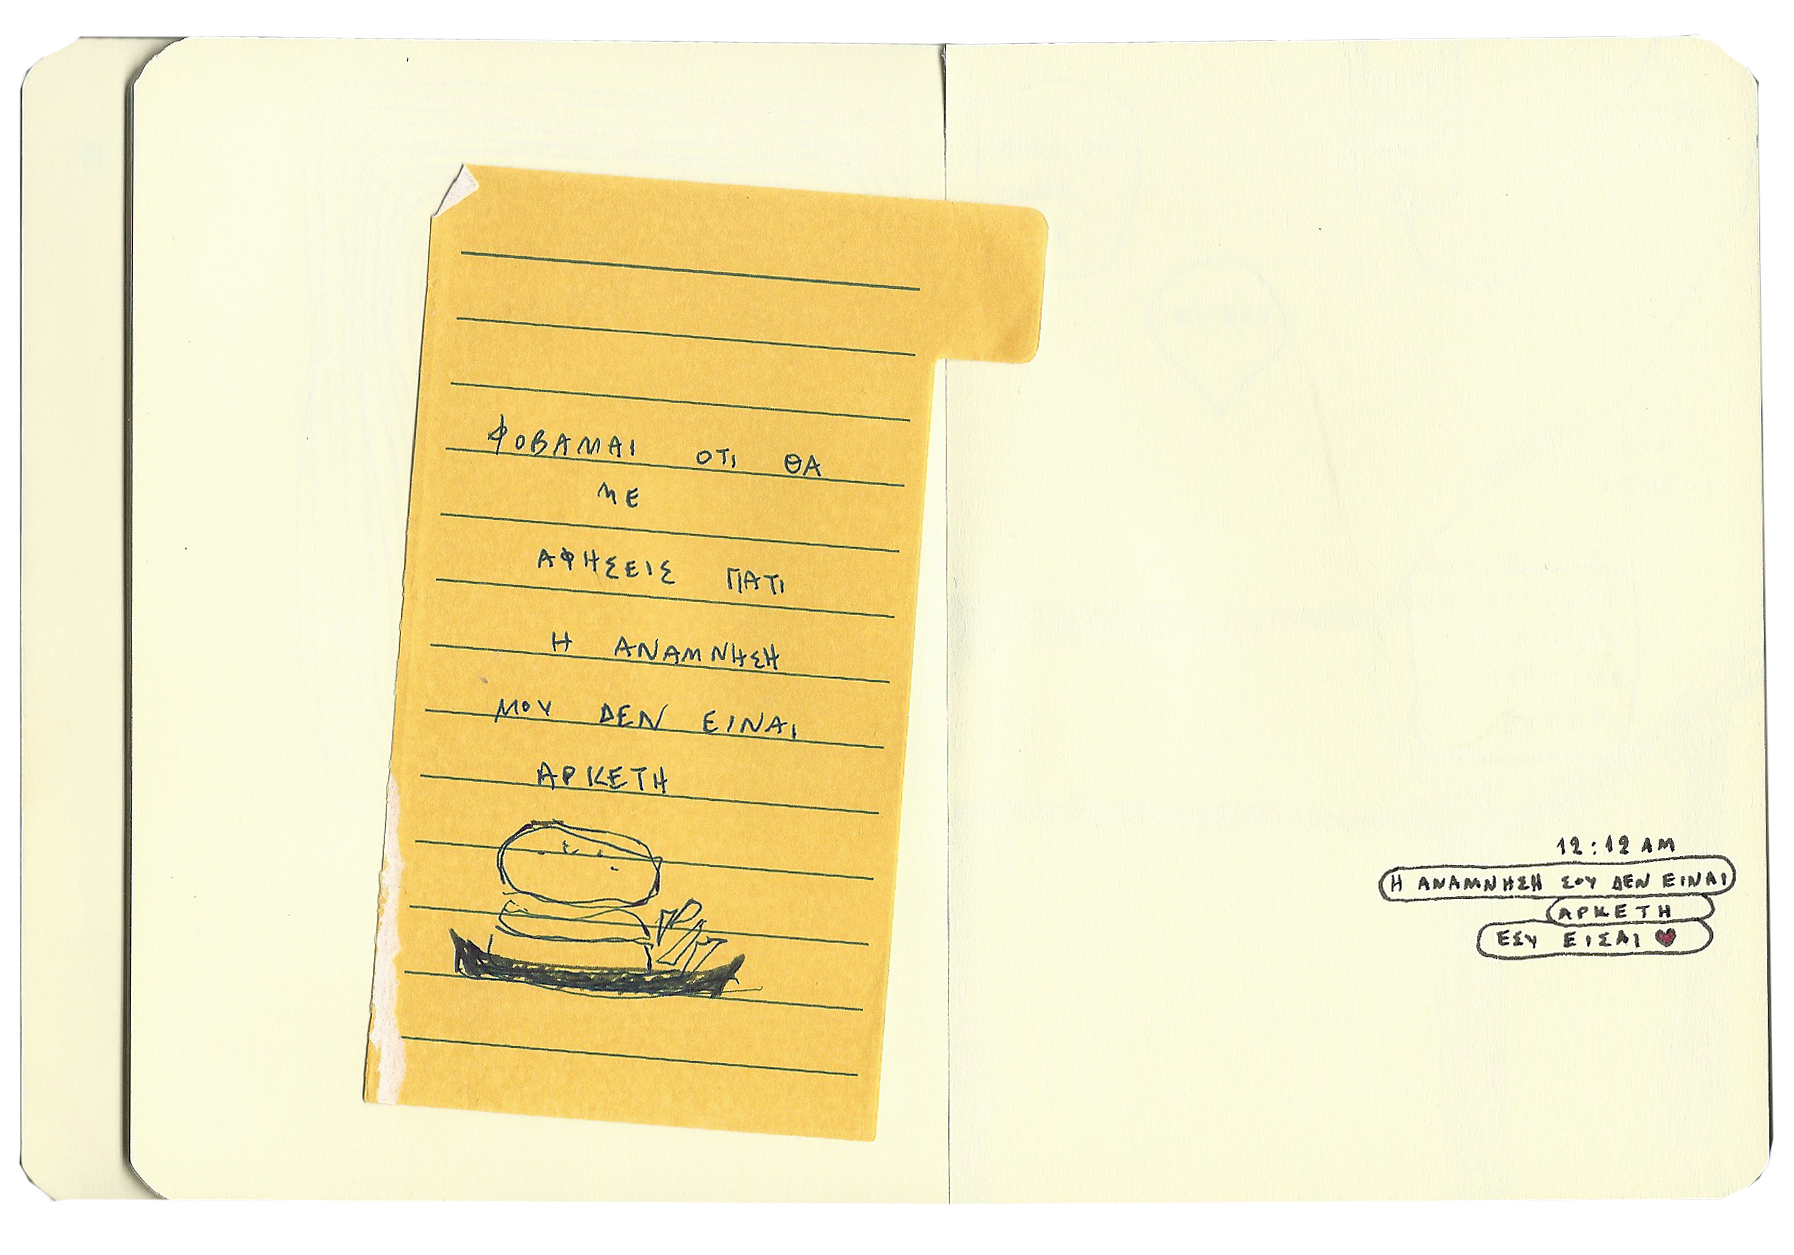 ΦΟΒΑΜΑΙ ΟΤΙ ΘΑ
ΜΕ
ΑΦΗΣΕΙΣ ΓΙΑΤΙ
Η ΑΝΑΜΝΗΣΗ
ΜΟΥ ΔΕΝ ΕΙΝΑΙ
ΑΡΚΕΤΗ
12:12 AM
Η ΑΝΑΜΝΗΣΗ ΣΟΥ ΔΕΝ ΕΙΝΑΙ
ΑΡΚΕΤΗ
ΕΣΥ ΕΙΣΑΙ ♥